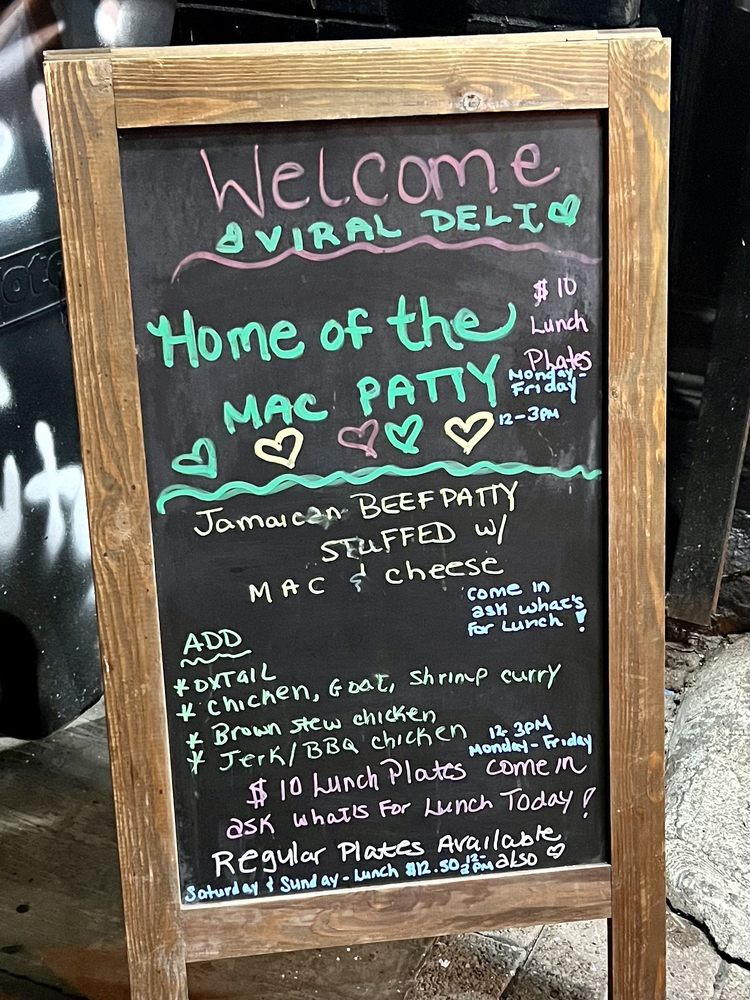 Welcome
VIRAL DELI
$10
Lunch
Plates
Monday-
Friday
12-3PM
Home of the
MAC PATTY
Jamaican BEEF PATTY
STUFFED w/
MAC & cheese
come in
ask what's
For Lunch !
ADD
* OXTAIL
* Chicken, Goat, Shrimp curry
* Brown stew chicken
* Jerk/BBQ chicken
12-3PM
Monday-Friday
$10 Lunch Plates come in
ask what's For Lunch Today !
Regular Plates Available
also
Saturday & Sunday - Lunch $12.50